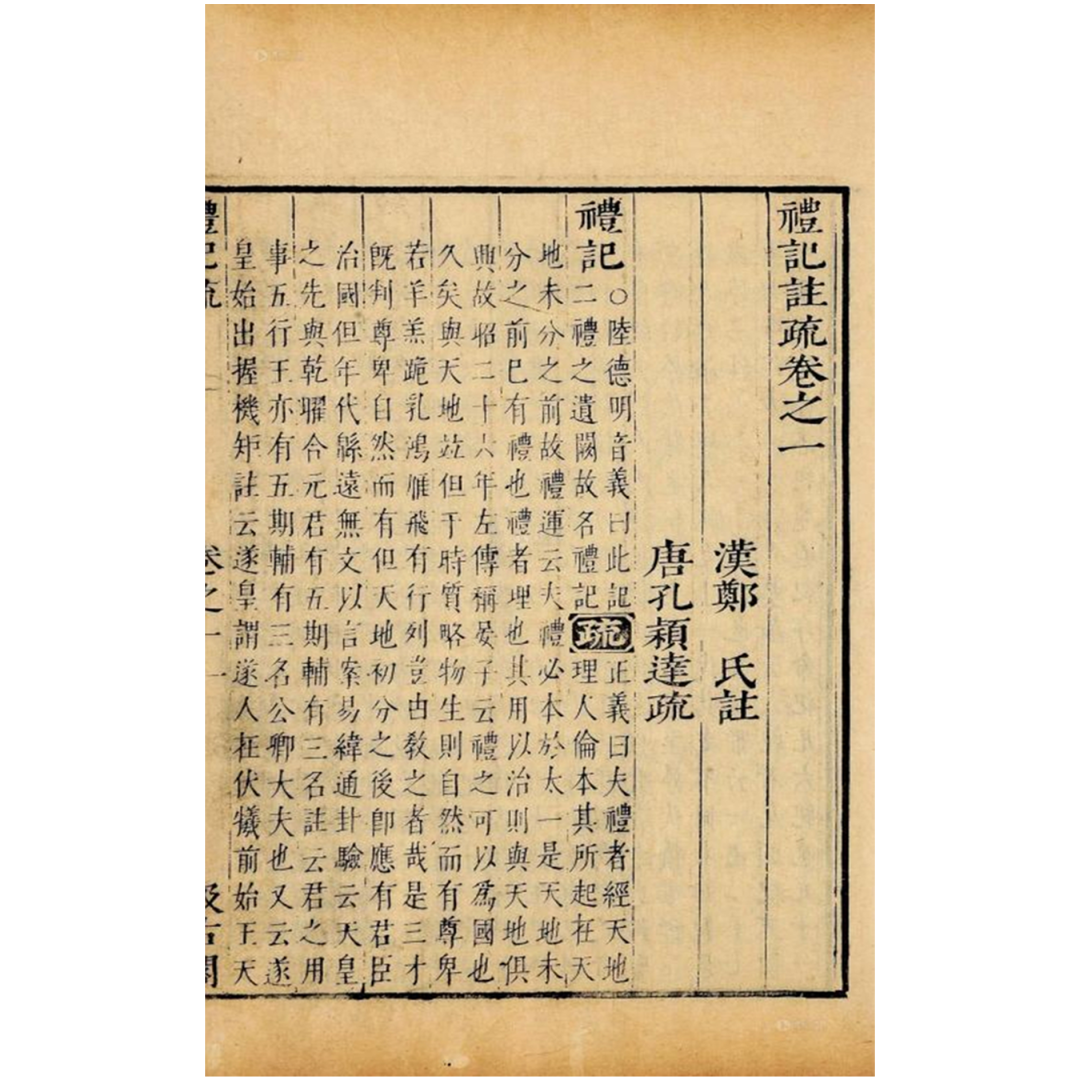 禮記註疏卷之一
漢鄭　氏註
唐孔穎達疏
禮記
○陸德明音義曰此記
二禮之遺闕故名禮記
疏
正義曰夫禮者經天地
理人倫本其所起在天
地未分之前故禮運云夫禮必本於太一是天地未
分之前巳有禮也禮者理也其用以治則與天地俱
興故昭二十六年左傳稱晏子云禮之可以爲國也
久矣與天地竝但于時質略物生則自然而有尊卑
若羊羔跪乳鴻雁飛有行列豈由敎之者哉是三才
旣判尊卑自然而有但天地初分之後卽應有君臣
治國但年代緜遠無文以言案易緯通卦驗云天皇
之先與乾曜合元君有五期輔有三名註云君之用
事五行王亦有五期輔有三名公卿大夫也又云遂
皇始出握機矩註云遂皇謂遂人在伏犧前始王天
禮記疏
卷之一
一
汲古閣